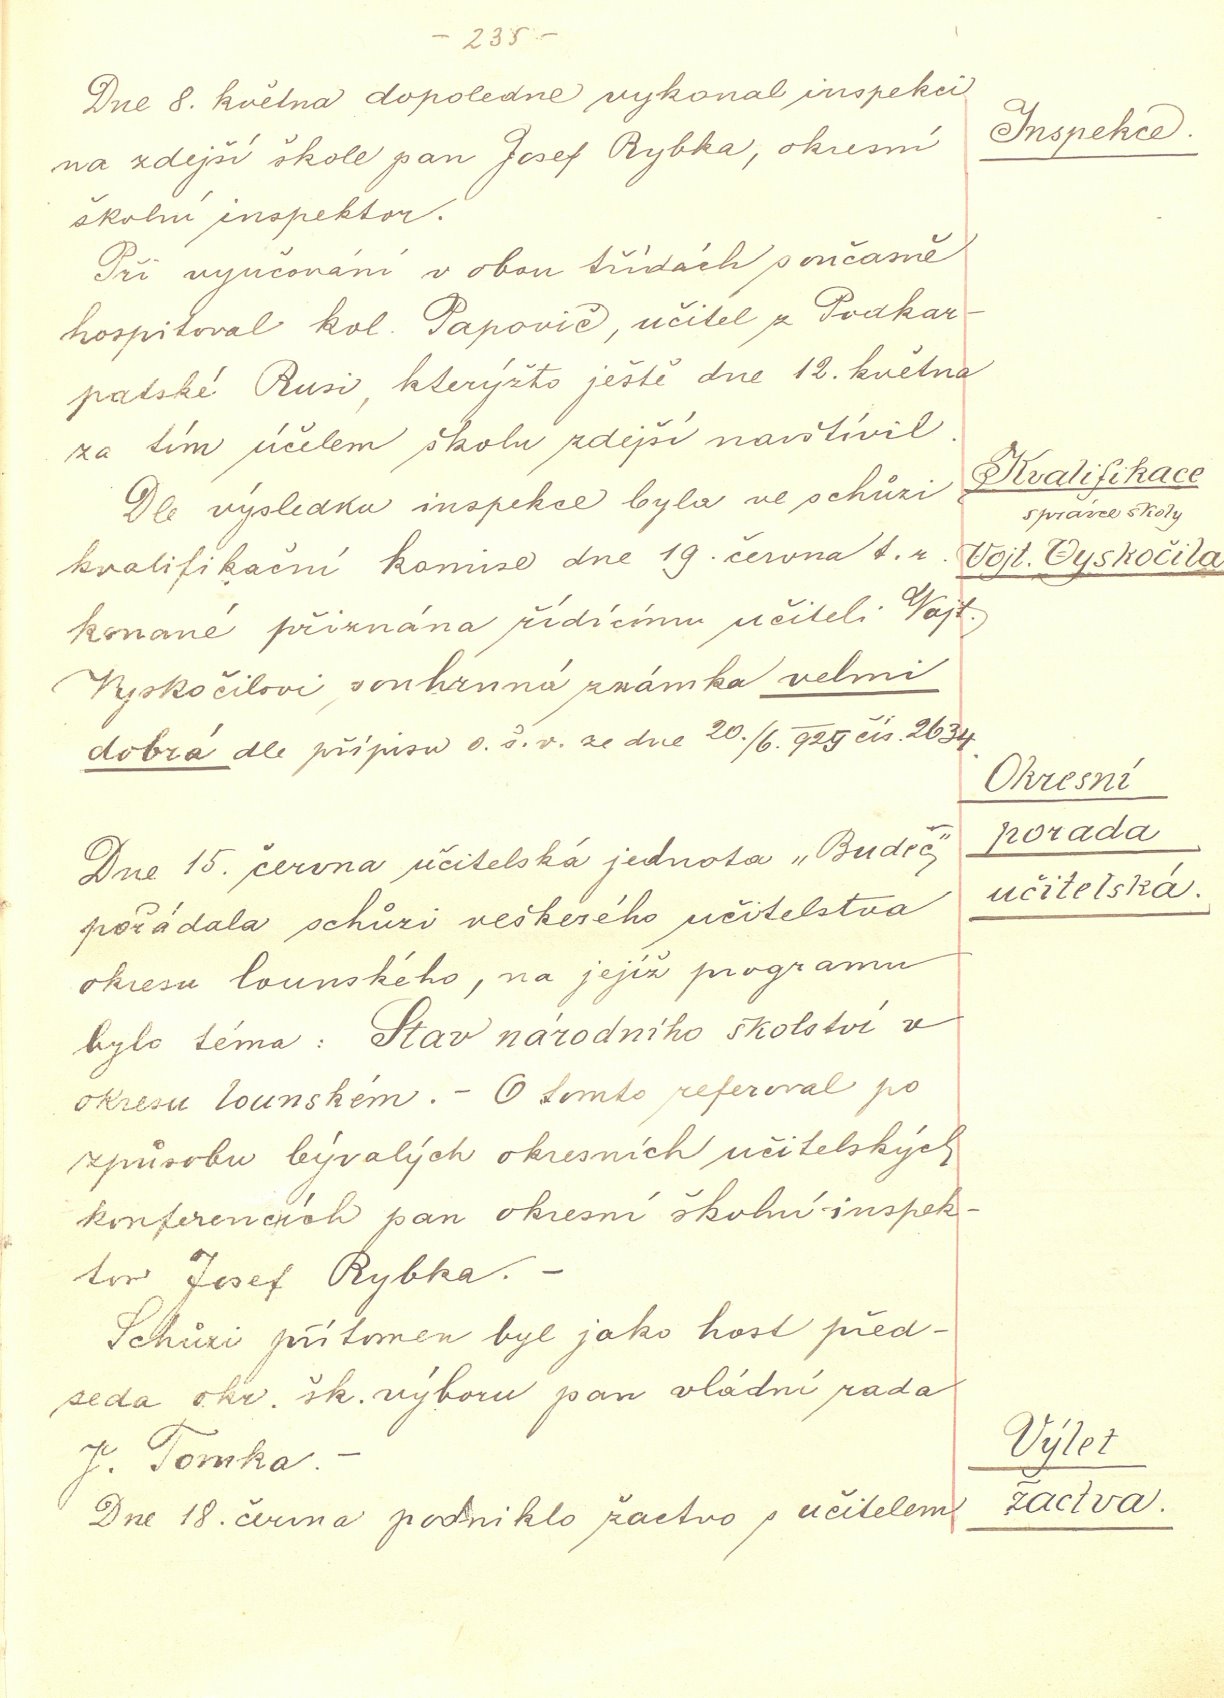 - 235 -
Dne 8. května dopoledne vykonal inspekci
Inspekce.
na zdejší škole pan Josef Rybka, okresní
školní inspektor.
Při vyučování v obou třídách současně
hospitoval kol. Papovič, učitel z Podkar-
patské Rusi, kterýžto ještě dne 12. května
za tím účelem školu zdejší navštívil.
Kvalifikace
správce školy
Vojt. Vyskočila
Dle výsledku inspekce byla ve schůzi
kvalifikační komise dne 19. června t. r.
konané přiznána řídícímu učiteli Vojt.
Vyskočilovi souhrnná známka velmi
dobrá dle přípisu o. š. v. ze dne 20./6. 929 čís. 2634
Okresní
porada
učitelská.
Dne 15. června učitelská jednota „Budeč"
pořádala schůzi veškerého učitelstva
okresu lounského, na jejíž programu
bylo téma: Stav národního školství v
okresu lounském. - O tomto referoval po
způsobu bývalých okresních učitelských
konferencích pan okresní školní inspek-
tor Josef Rybka. -
Schůzi přítomen byl jako host před-
seda okr. šk. výboru pan vládní rada
J. Tomka. -
Výlet
žactva.
Dne 18. června podniklo žactvo s učitelem